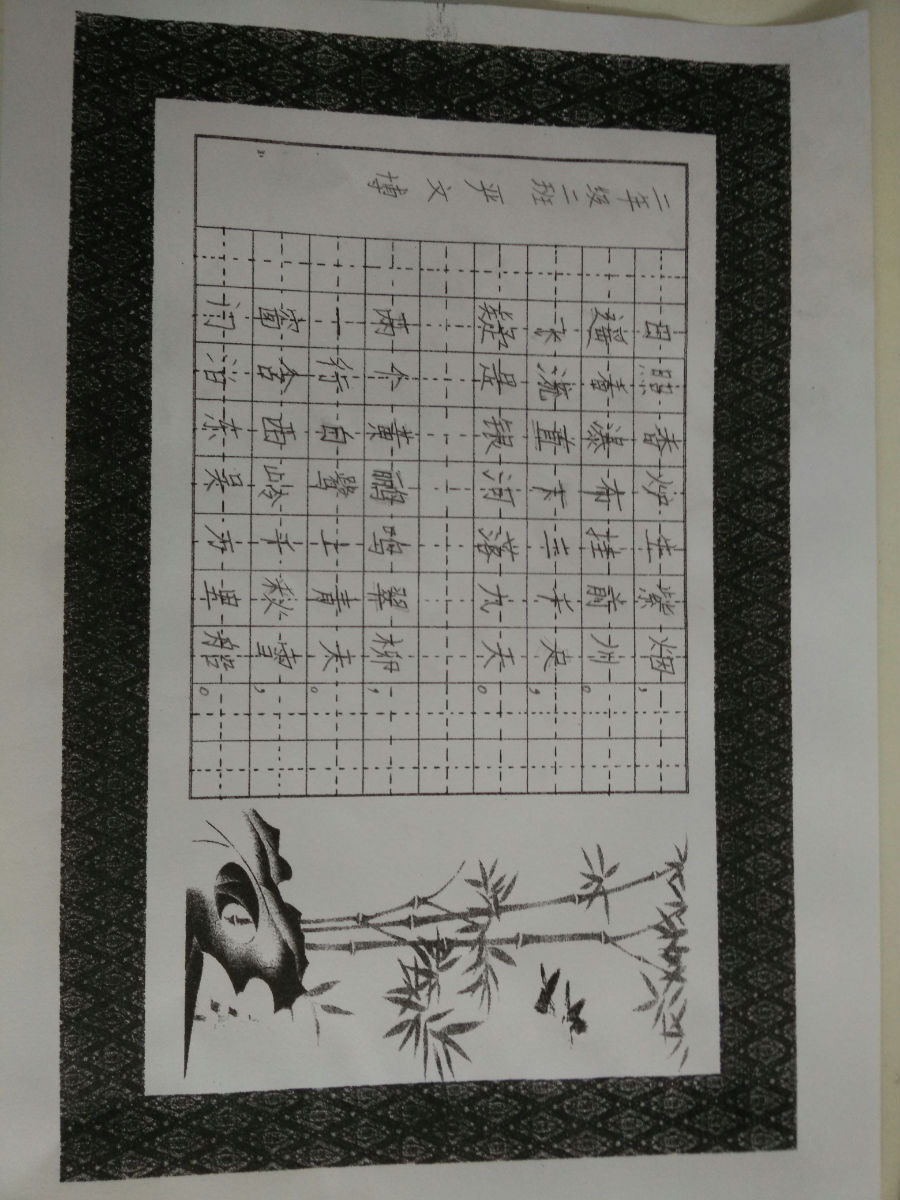 二年级二班 文博
日照香炉生紫烟,
遥看瀑布挂前川。
飞流直下三千尺,
疑是银河落九天。
两个黄鹂鸣翠柳,
一行白鹭上青天。
窗含西岭千秋雪,
门泊东吴万里船。